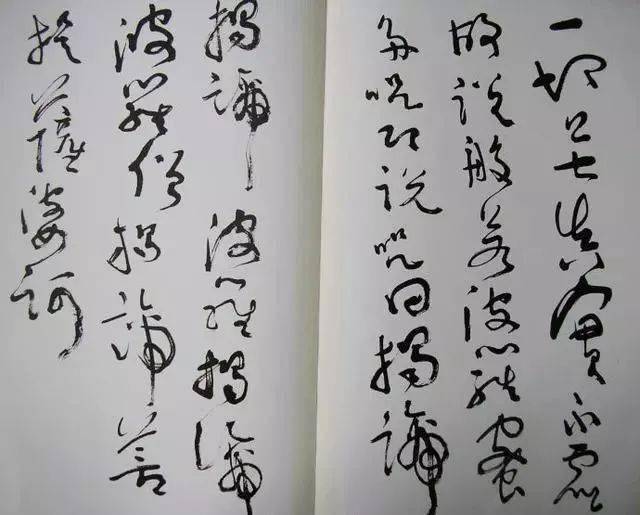 一切苦真實不虛
故説般若波羅蜜
多呪即説呪曰揭諦
揭諦波羅揭諦
波羅僧揭諦菩
提薩婆訶